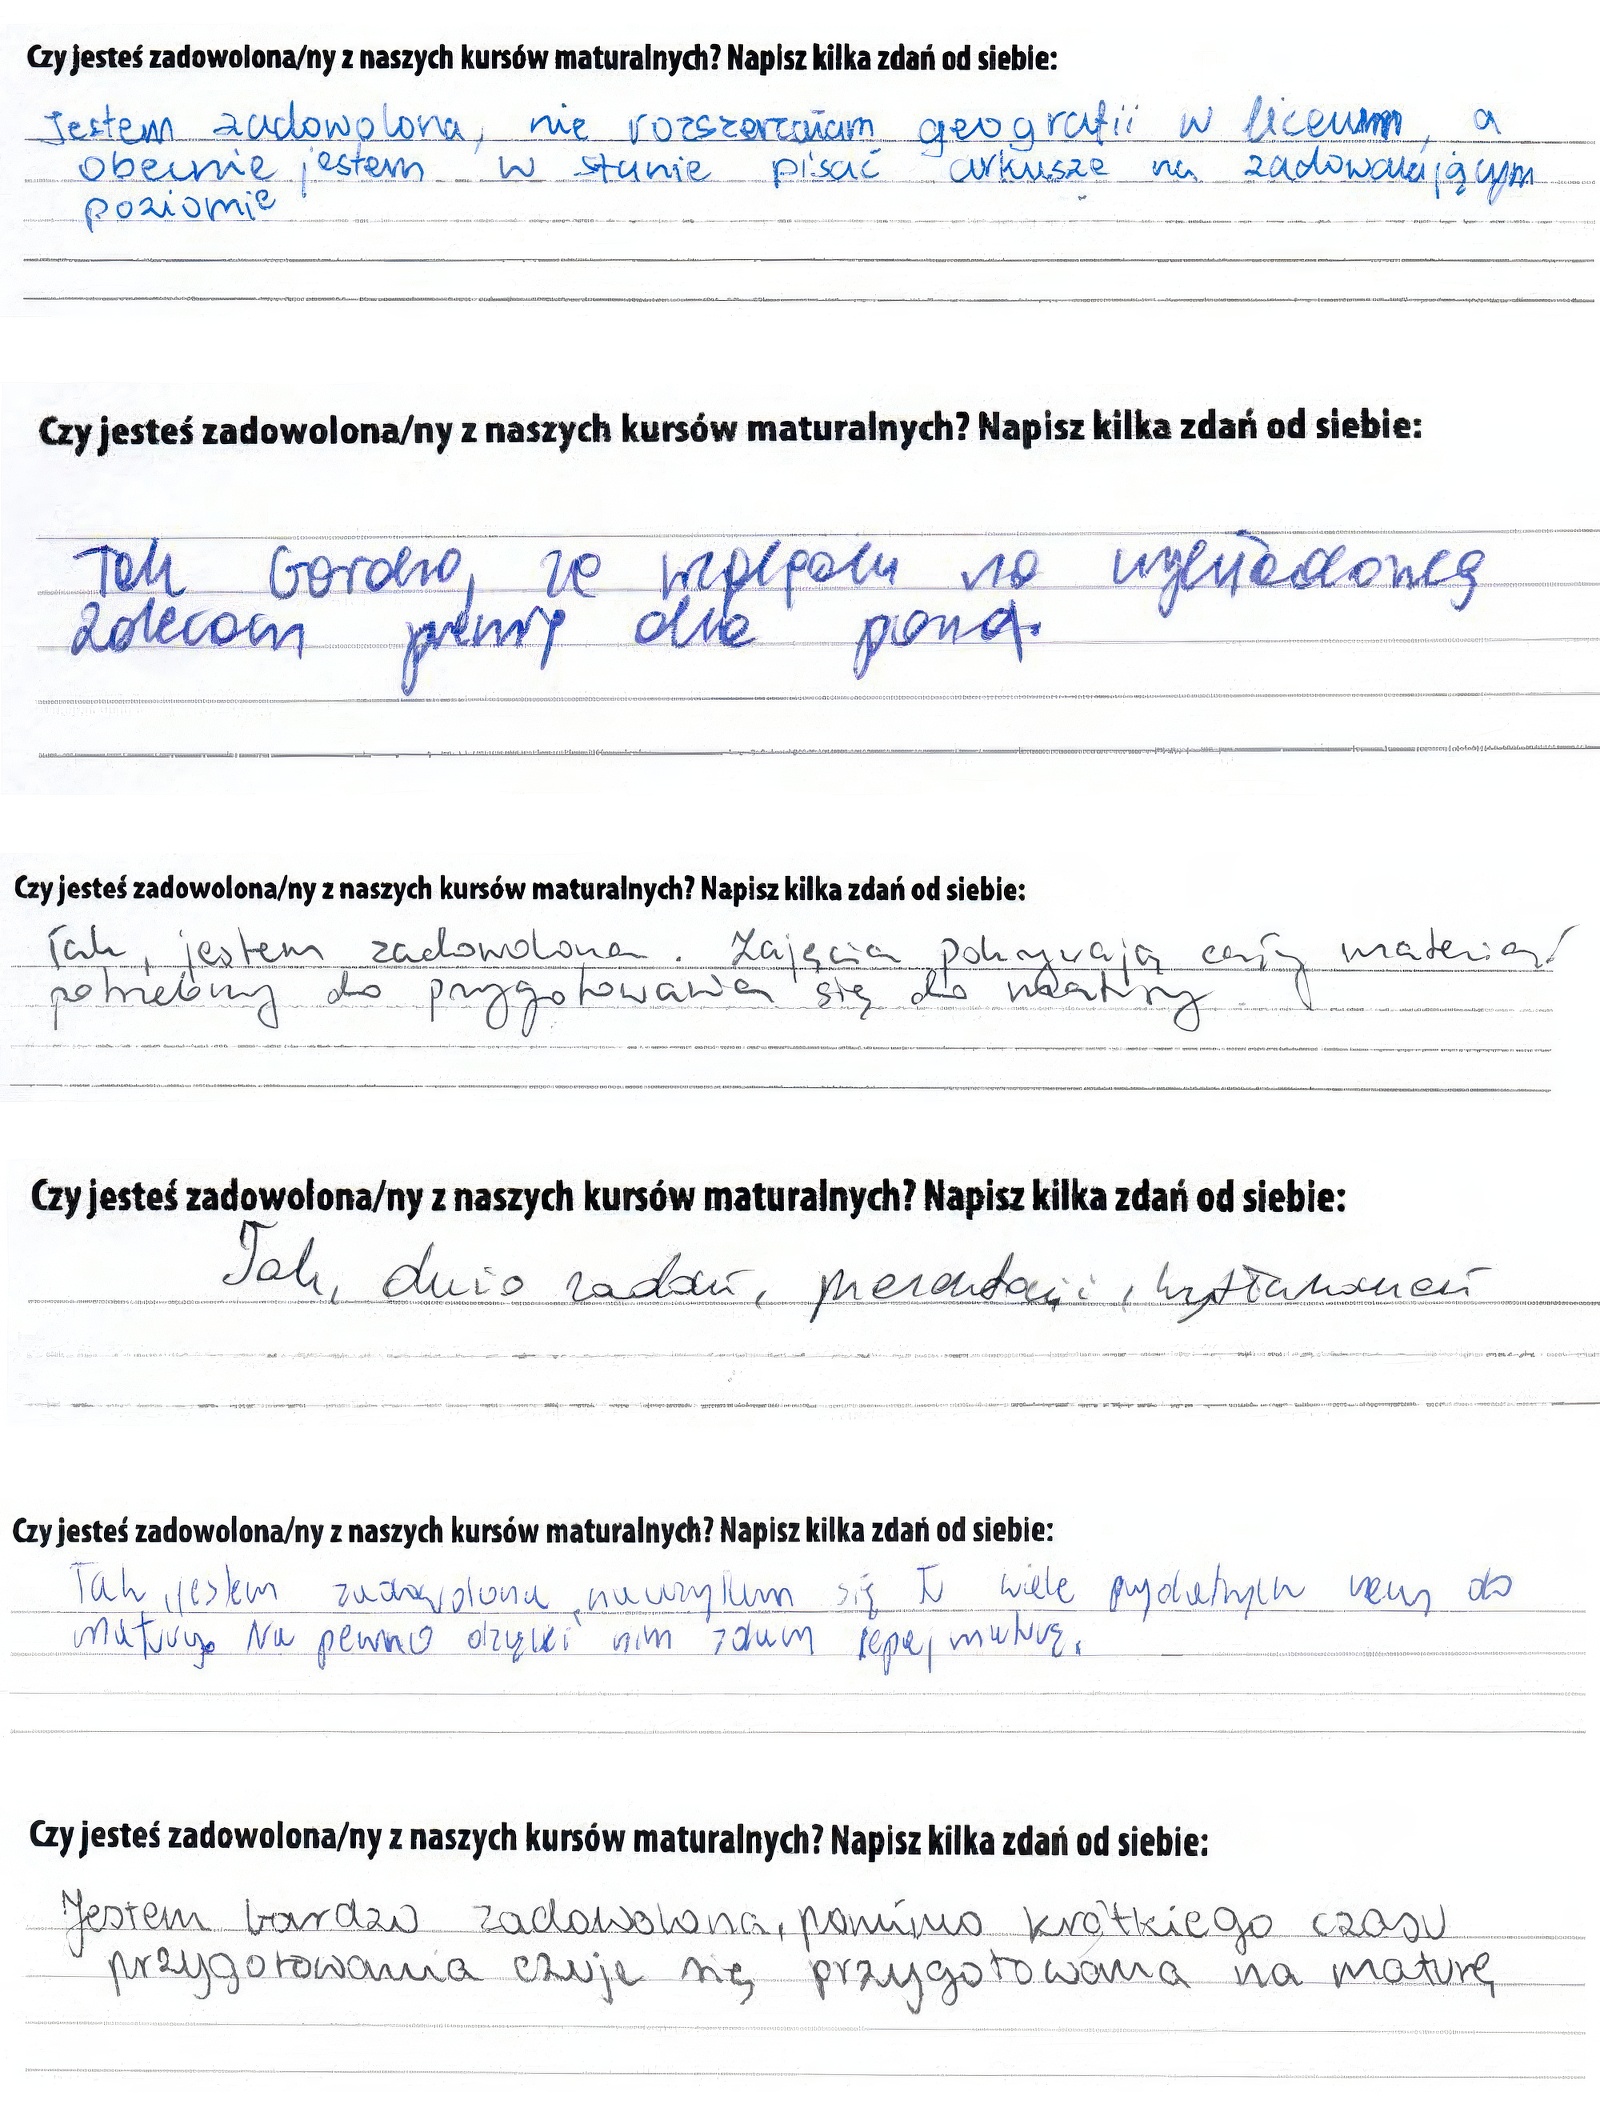 Czy jesteś zadowolona/ny z naszych kursów maturalnych? Napisz kilka zdań od siebie:
Jestem zadowolona, nie rozszerzałam geografii w liceum, a
obecnie jestem w stanie pisać arkusze na zadowalającym
poziomie
Czy jesteś zadowolona/ny z naszych kursów maturalnych? Napisz kilka zdań od siebie:
Tak bardzo, ze względu na wykładowcę
zalecam premię dla pana.
Czy jesteś zadowolona/ny z naszych kursów maturalnych? Napisz kilka zdań od siebie:
Tak, jestem zadowolona. Zajęcia pokrywają cały materiał
potrzebny do przygotowania się do matury.
Czy jesteś zadowolona/ny z naszych kursów maturalnych? Napisz kilka zdań od siebie:
Tak, dużo zadań, prezentacji,
Czy jesteś zadowolona/ny z naszych kursów maturalnych? Napisz kilka zdań od siebie:
Tak, jestem zadowolona, nauczyłam się tu wiele przydatnych rzeczy do
matury. Na pewno dzięki nim zdam lepiej maturę.
Czy jesteś zadowolona/ny z naszych kursów maturalnych? Napisz kilka zdań od siebie:
Jestem bardzo zadowolona, pomimo krótkiego czasu
przygotowania czuje się przygotowana na maturę